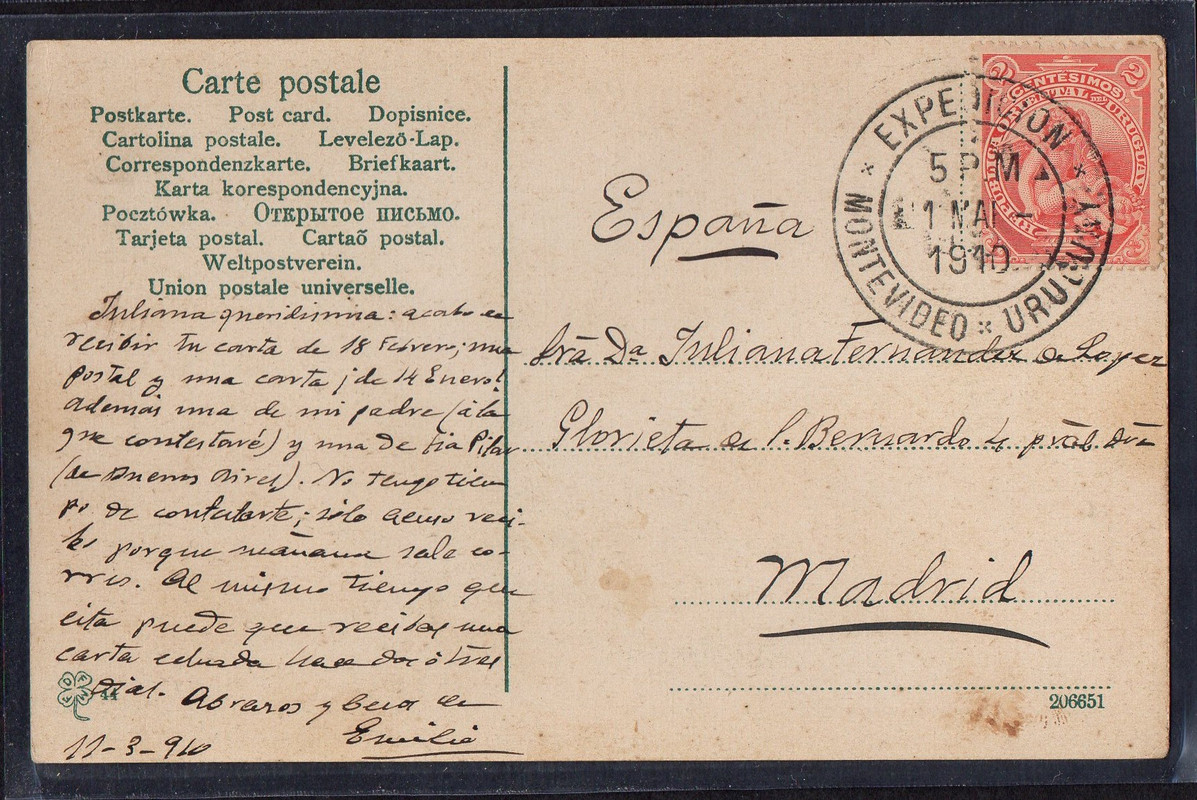 Carte postale
Postkarte. Post card. Dopisnice.
Cartolina postale. Levelező-Lap.
Correspondenzkarte. Briefkaart.
Karta korespondencyjna.
Pocztówka. Открытое письмо.
Tarjeta postal. Cartaõ postal.
Weltpostverein.
Union postale universelle.
Juliana queridisima: acabo de
recibir tu carta de 18 Febrero; una
postal y una carta ¡de 14 Enero!
además una de mi padre (á la
que contestaré) y una de tia Pilar
(de Buenos Aires). No tengo tiem
po de contestarte; sólo acuso reci-
bo porque mañana sale co-
rreo. Al mismo tiempo que
esta puede que recibas una
carta echada hace dos ó tres
dias. Abrazos y besos de
Emilio
11-3-910
44
España
Sra Da Juliana Fernández de Lopez
Glorieta de S. Bernardo 4 pral dra
Madrid
206651
2 CENTÉSIMOS 2
REPUBLICA ORIENTAL DEL URUGUAY
EXPEDICION
5 PM
1910
* MONTEVIDEO * URUGUAY *